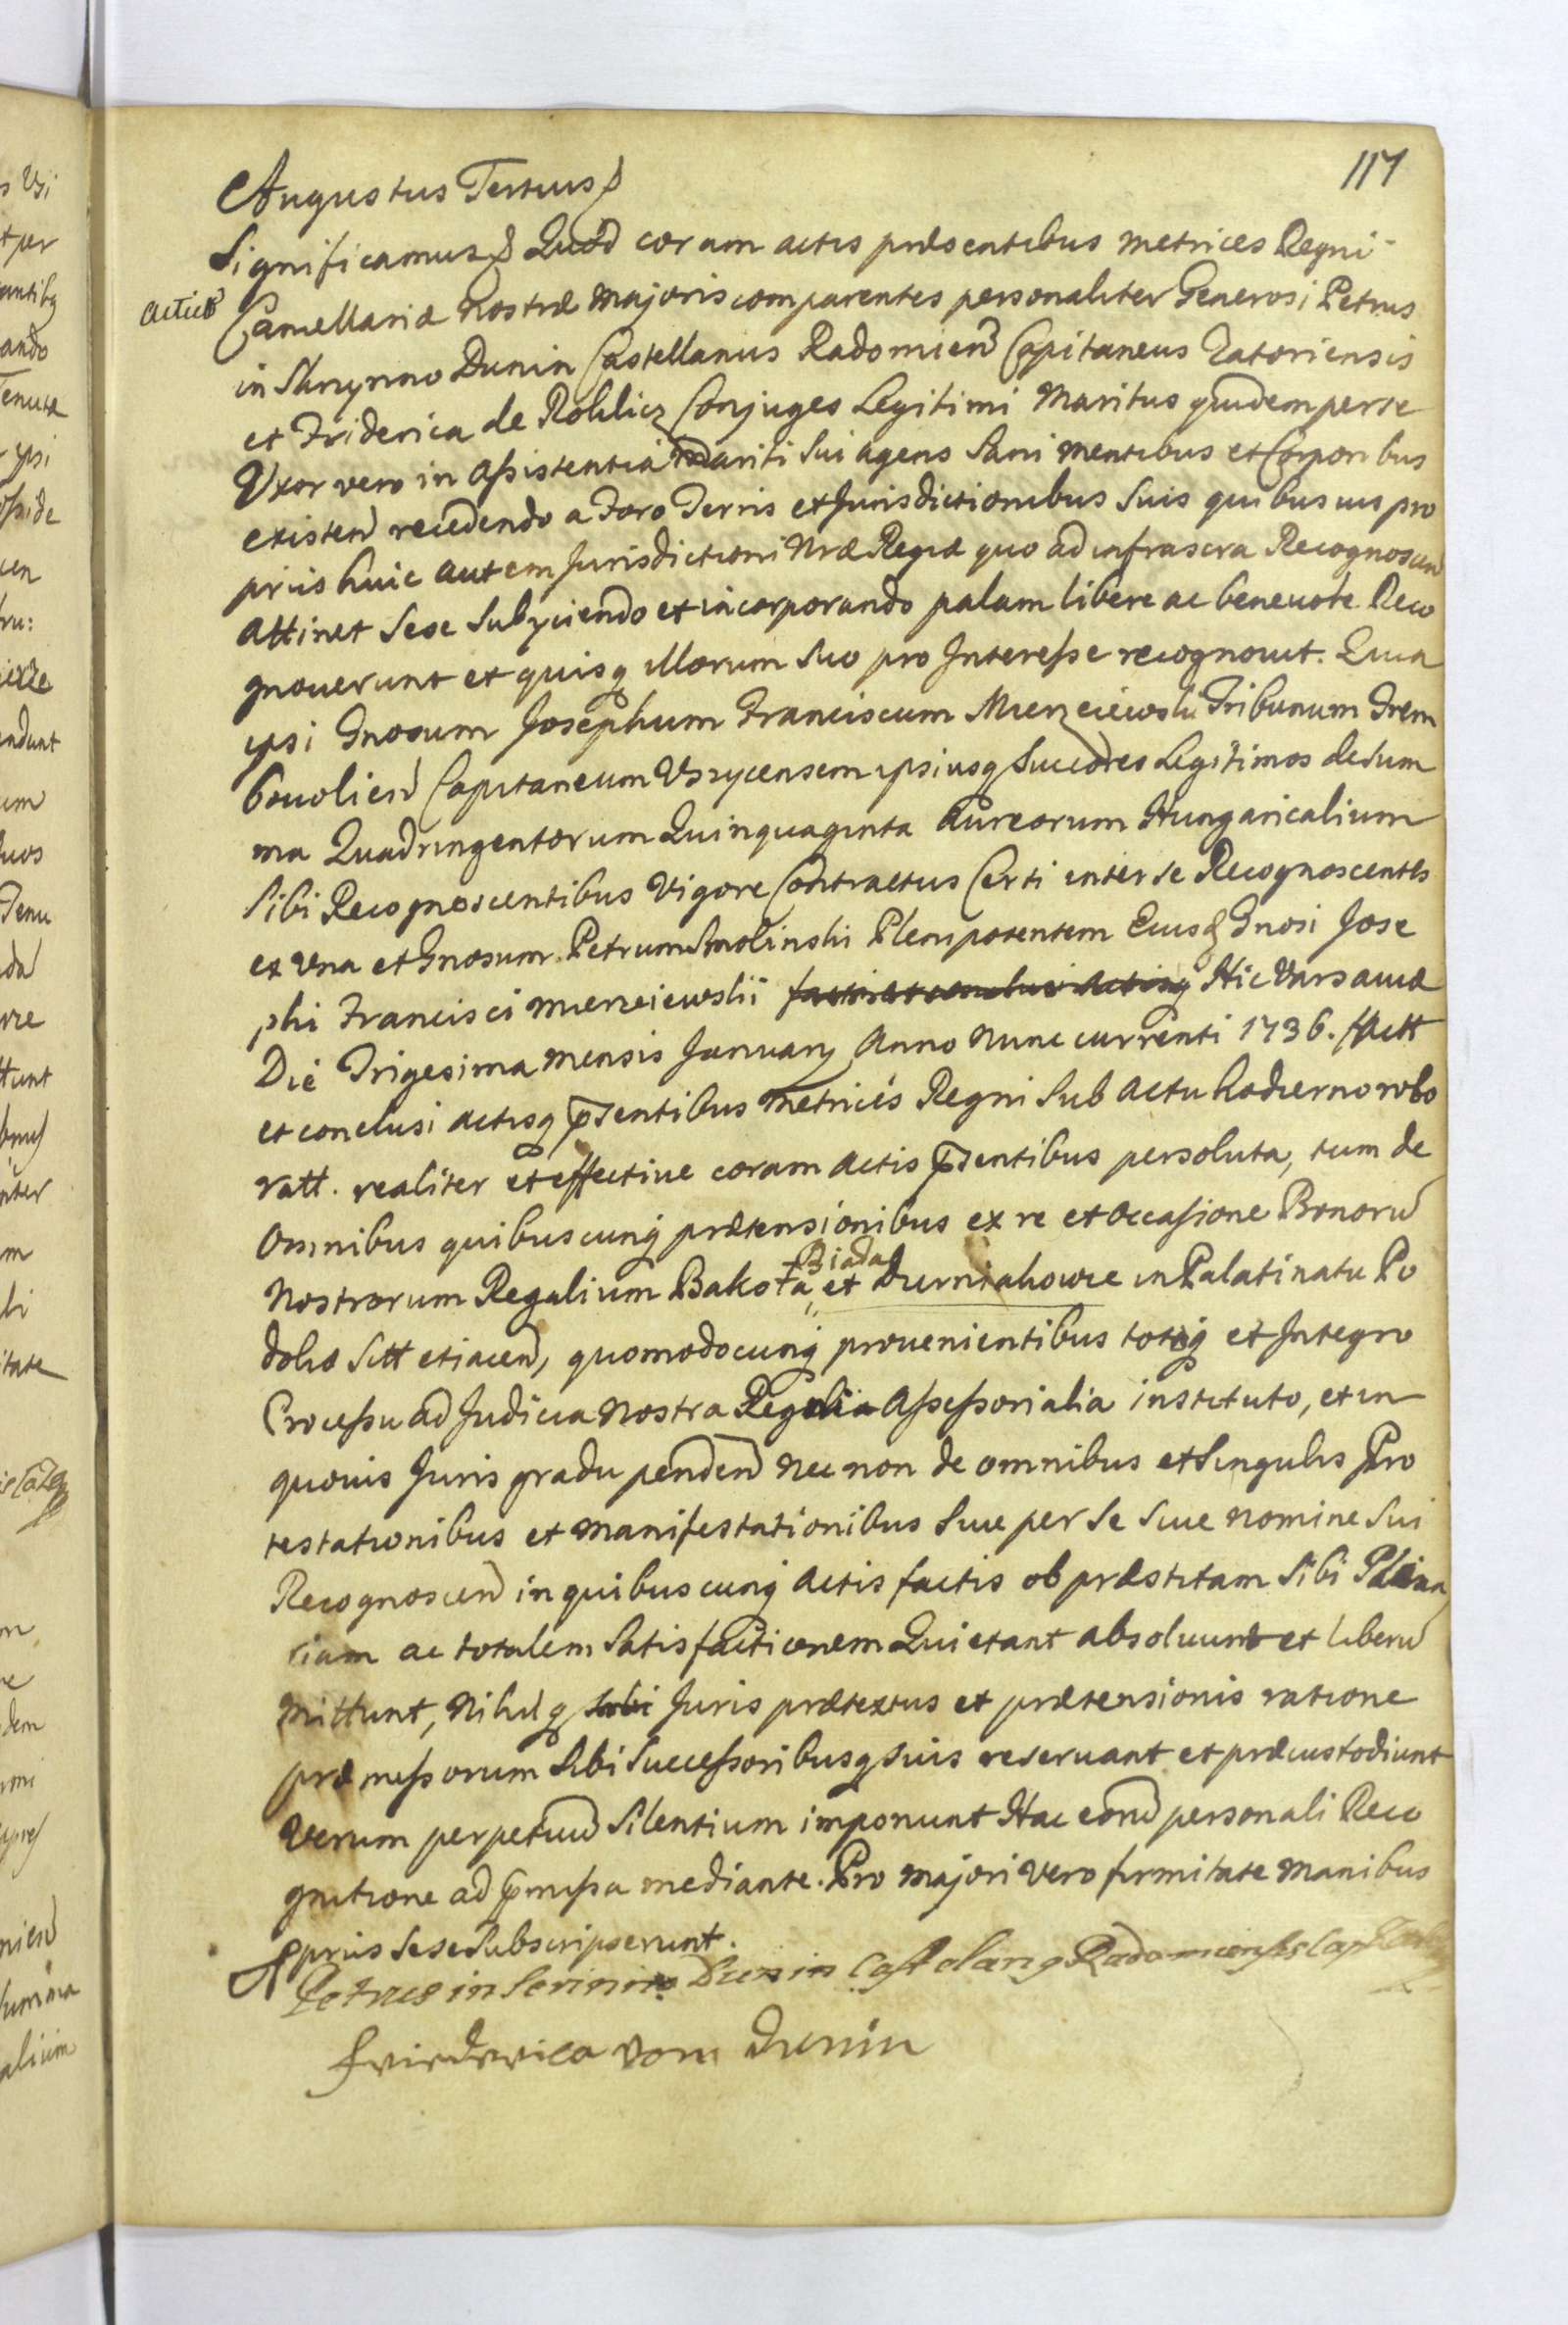 117
Augustus Tertius
Significamus Quod coram actis præsentibus Metrices Regni
acticŏ Cancellariæ Nostræ Majoris comparentes personaliter Generosi Petrus
in Skrzynno Dunin Castellanus Radomien Capitaneus Zatoriensis
et Friderica de Rohlicz Conjuges Legitimi Maritus quidem per se
Uxor vero in Assistentia Mariti sui agens Sani mentibus et Corporibus
existen recedendo a Foro Terris et Jurisdictionibus Suis quibusvis pro
priis huic autem Jurisdictioni Nræ Regiæ quo ad infrascra Recognoscen
attinet Sese Subyciendo et incorporando palam libere ac benevole Reco
gnoverunt et quisq illorum Suo pro Interesse recognovit. Quia
ipsi Gnosum Josephum Franciscum Mierzeiewski Tribunum Trem
bowolien Capitaneum Uszycensem ipsiusq Succōres Legitimos de Sum
ma Quadringentorum Quinquaginta Aureorum Hungaricalium
Sibi Recognoscentibus Vigore Contractus Certi inter se Recognoscentes
ex Una et Gnosum Petrum Smolinski Plenipotentem Eiusd Gnosi Jose
phi Francisci Mierzeiewskii Hic Varsaviæ
Die Trigesima Mensis January Anno Nunc currenti 1736. factt
et conclusi actisq pntibus Metrices Regni Sub Actu hodierno robo
ratt. realiter et effective coram Actis psentibus persoluta, tum de
Omnibus quibuscunq prætensionibus ex re et Occasione Bonorū
Biada
Nostrorum Regalium Bakota, et Durniakowce in Palatinatu Po
doliæ Sitt et iacen, quomodocunq provenientibus totoq et Integro
Processu ad Judicia Nostra Regalia Assessorialia instituto, et in
quovis Juris gradu penden nec non de omnibus et Singulis Pro
testationibus et Manifestationibus Sive per Se Sive Nomine Sui
Recognoscen in quibuscunq Actis factis ob præstitam Sibi Plena
riam ac totalem Satisfactionem Quietant absolvunt et liberu
Mittunt, Nihilq Juris prætextus et prætensionis ratione
præmissorum Sibi Successoribusq Suis reservant et præcustodiunt
Verum perpetuū Silentium imponunt Hac eorū personali Reco
gnitione ad pmissa mediante. Pro Majori Vero firmitate Manibus
ppriis Sese Subscripserunt.
Petrus in Scrinno Dunin Castelang Radomiensis Cap
friedrica von Dunin